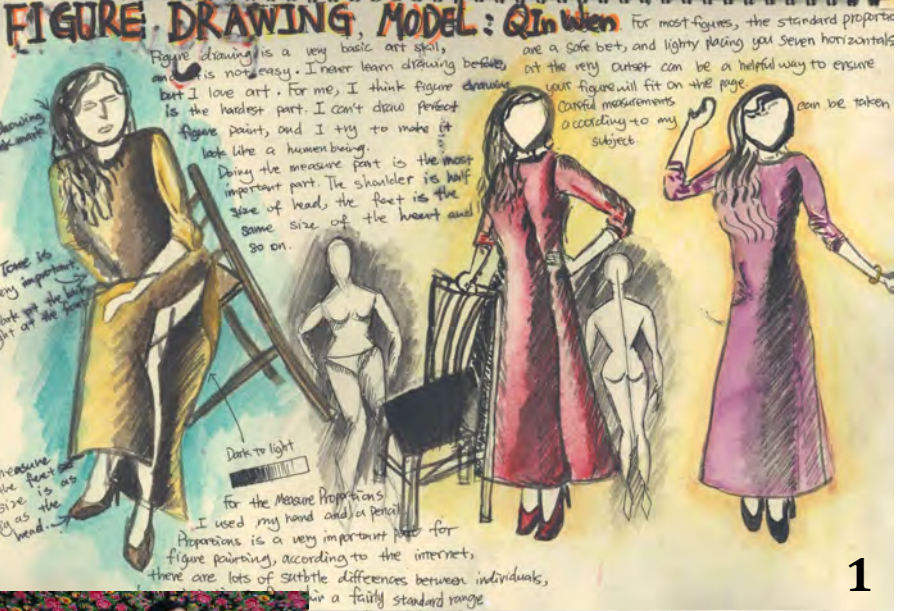 FIGURE DRAWING, MODEL: QIn Wen
Figure drawing is a very basic art skil,
and it is not easy. I never learn drawing before,
but I love art. For me, I think figure drawing
is the hardest part. I can't draw perfect
figure paint, and I try to make it
look like a human being.
Doing the measure part is the most
important part. The shoulder is half
size of head, the feet is the
same size of the heart and
so on.
For most figures, the standard proportio
are a safe bet, and lighty placing you seven horizontals
at the very outset can be a helpful way to ensure
your figure will fit on the page.
Careful measurements can be taken
according to my
subject.
drawing
Tone is
ery important.
Dark to light
measure
the feet
size is as
as the
head.
For the Measure Proportions
I used my hand and a pencil
Proportions is a very important part for
figure painting, according to the internet,
there are lots of subtle differences between individuals,
a fairly standard range
1